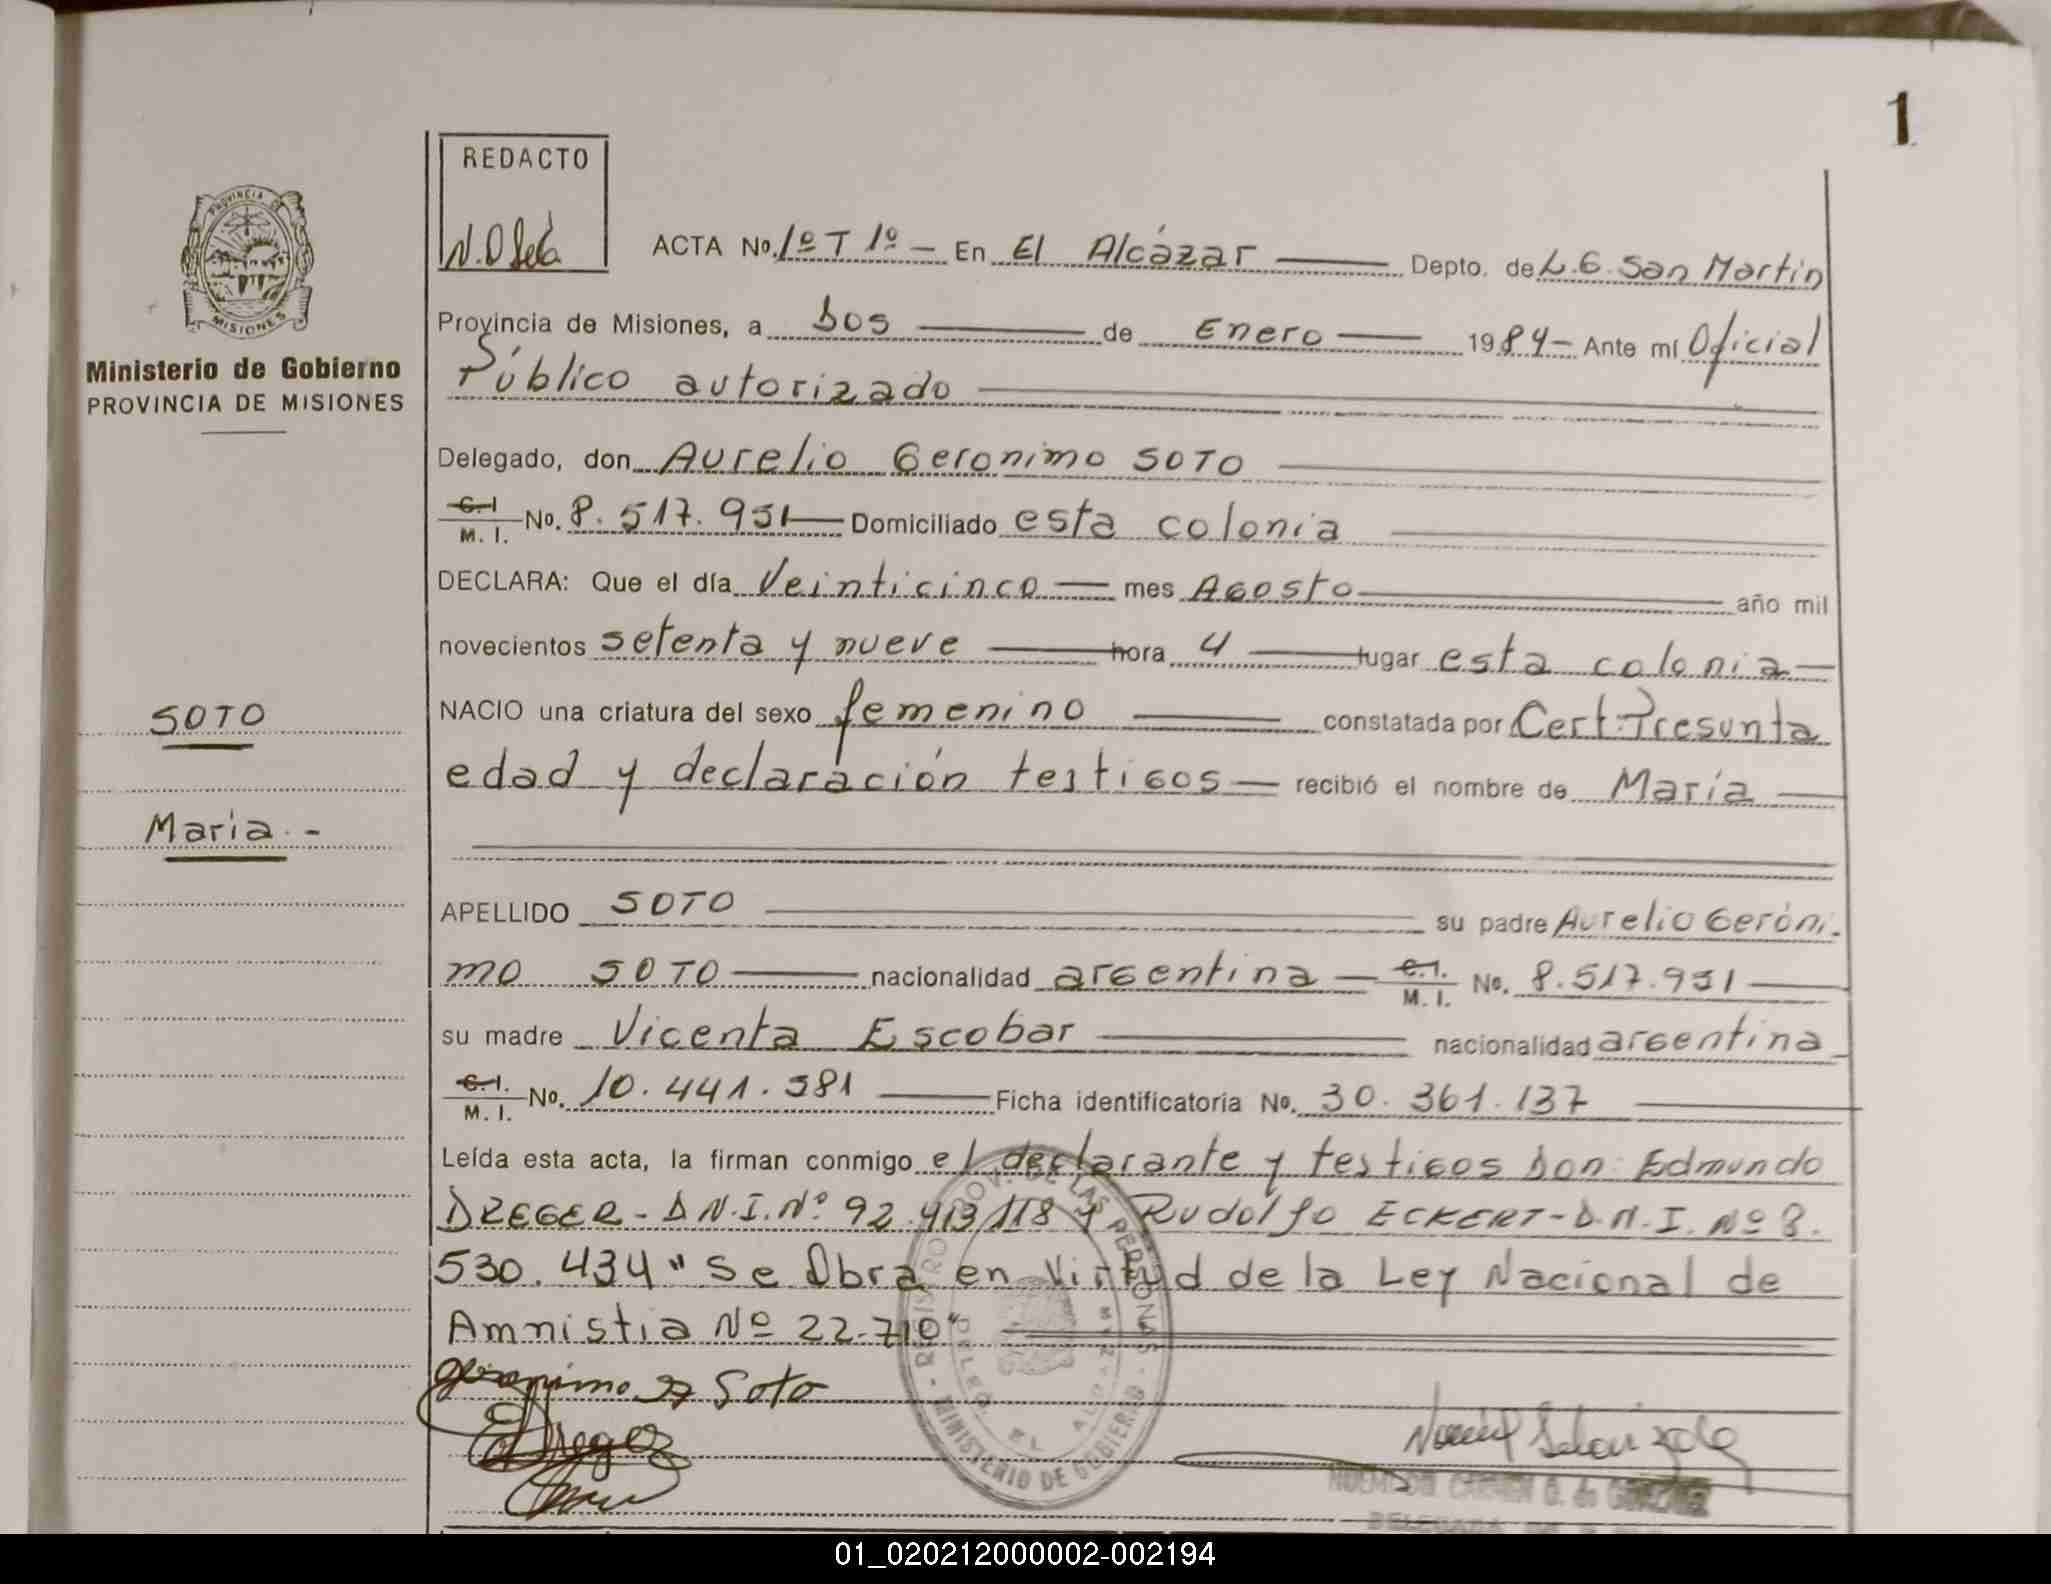 1
REDACTO
ACTA No. 1º T 1º - En El Alcázar Depto. de L.G. San Martín
PROVINCIA DE
MISIONES
Provincia de Misiones, a Dos de Enero 1984- Ante mí Oficial
Ministerio de Gobierno
PROVINCIA DE MISIONES
Público autorizado
Delegado, don Aurelio Geronimo SOTO
C.I. M. I. No. 8.517.951 Domiciliado esta colonia
DECLARA: Que el día Veinticinco mes Agosto año mil
novecientos setenta y nueve hora 4 lugar esta colonia
SOTO
NACIO una criatura del sexo femenino constatada por Cert. Presunta
edad y declaración testigos recibió el nombre de María
Maria.-
APELLIDO SOTO su padre Aurelio Geróni-
mo SOTO nacionalidad argentina C.I. M. I. No. 8.517.951
su madre Vicenta Escobar nacionalidad argentina
C.I. M. I. No. 10.441.581 Ficha identificatoria No. 30.361.137
Leída esta acta, la firman conmigo el declarante y testigos Don: Edmundo
DREGER - D.N.I. Nº 92.413.118 y Rudolfo ECKERT - D.N.I. Nº 8.
530.434 "Se Obra en Virtud de la Ley Nacional de
Amnistia Nº 22.710"
REGISTRO PROV. DE LAS PERSONAS
MINISTERIO DE GOBIERNO
Geronimo Soto
01_020212000002-002194